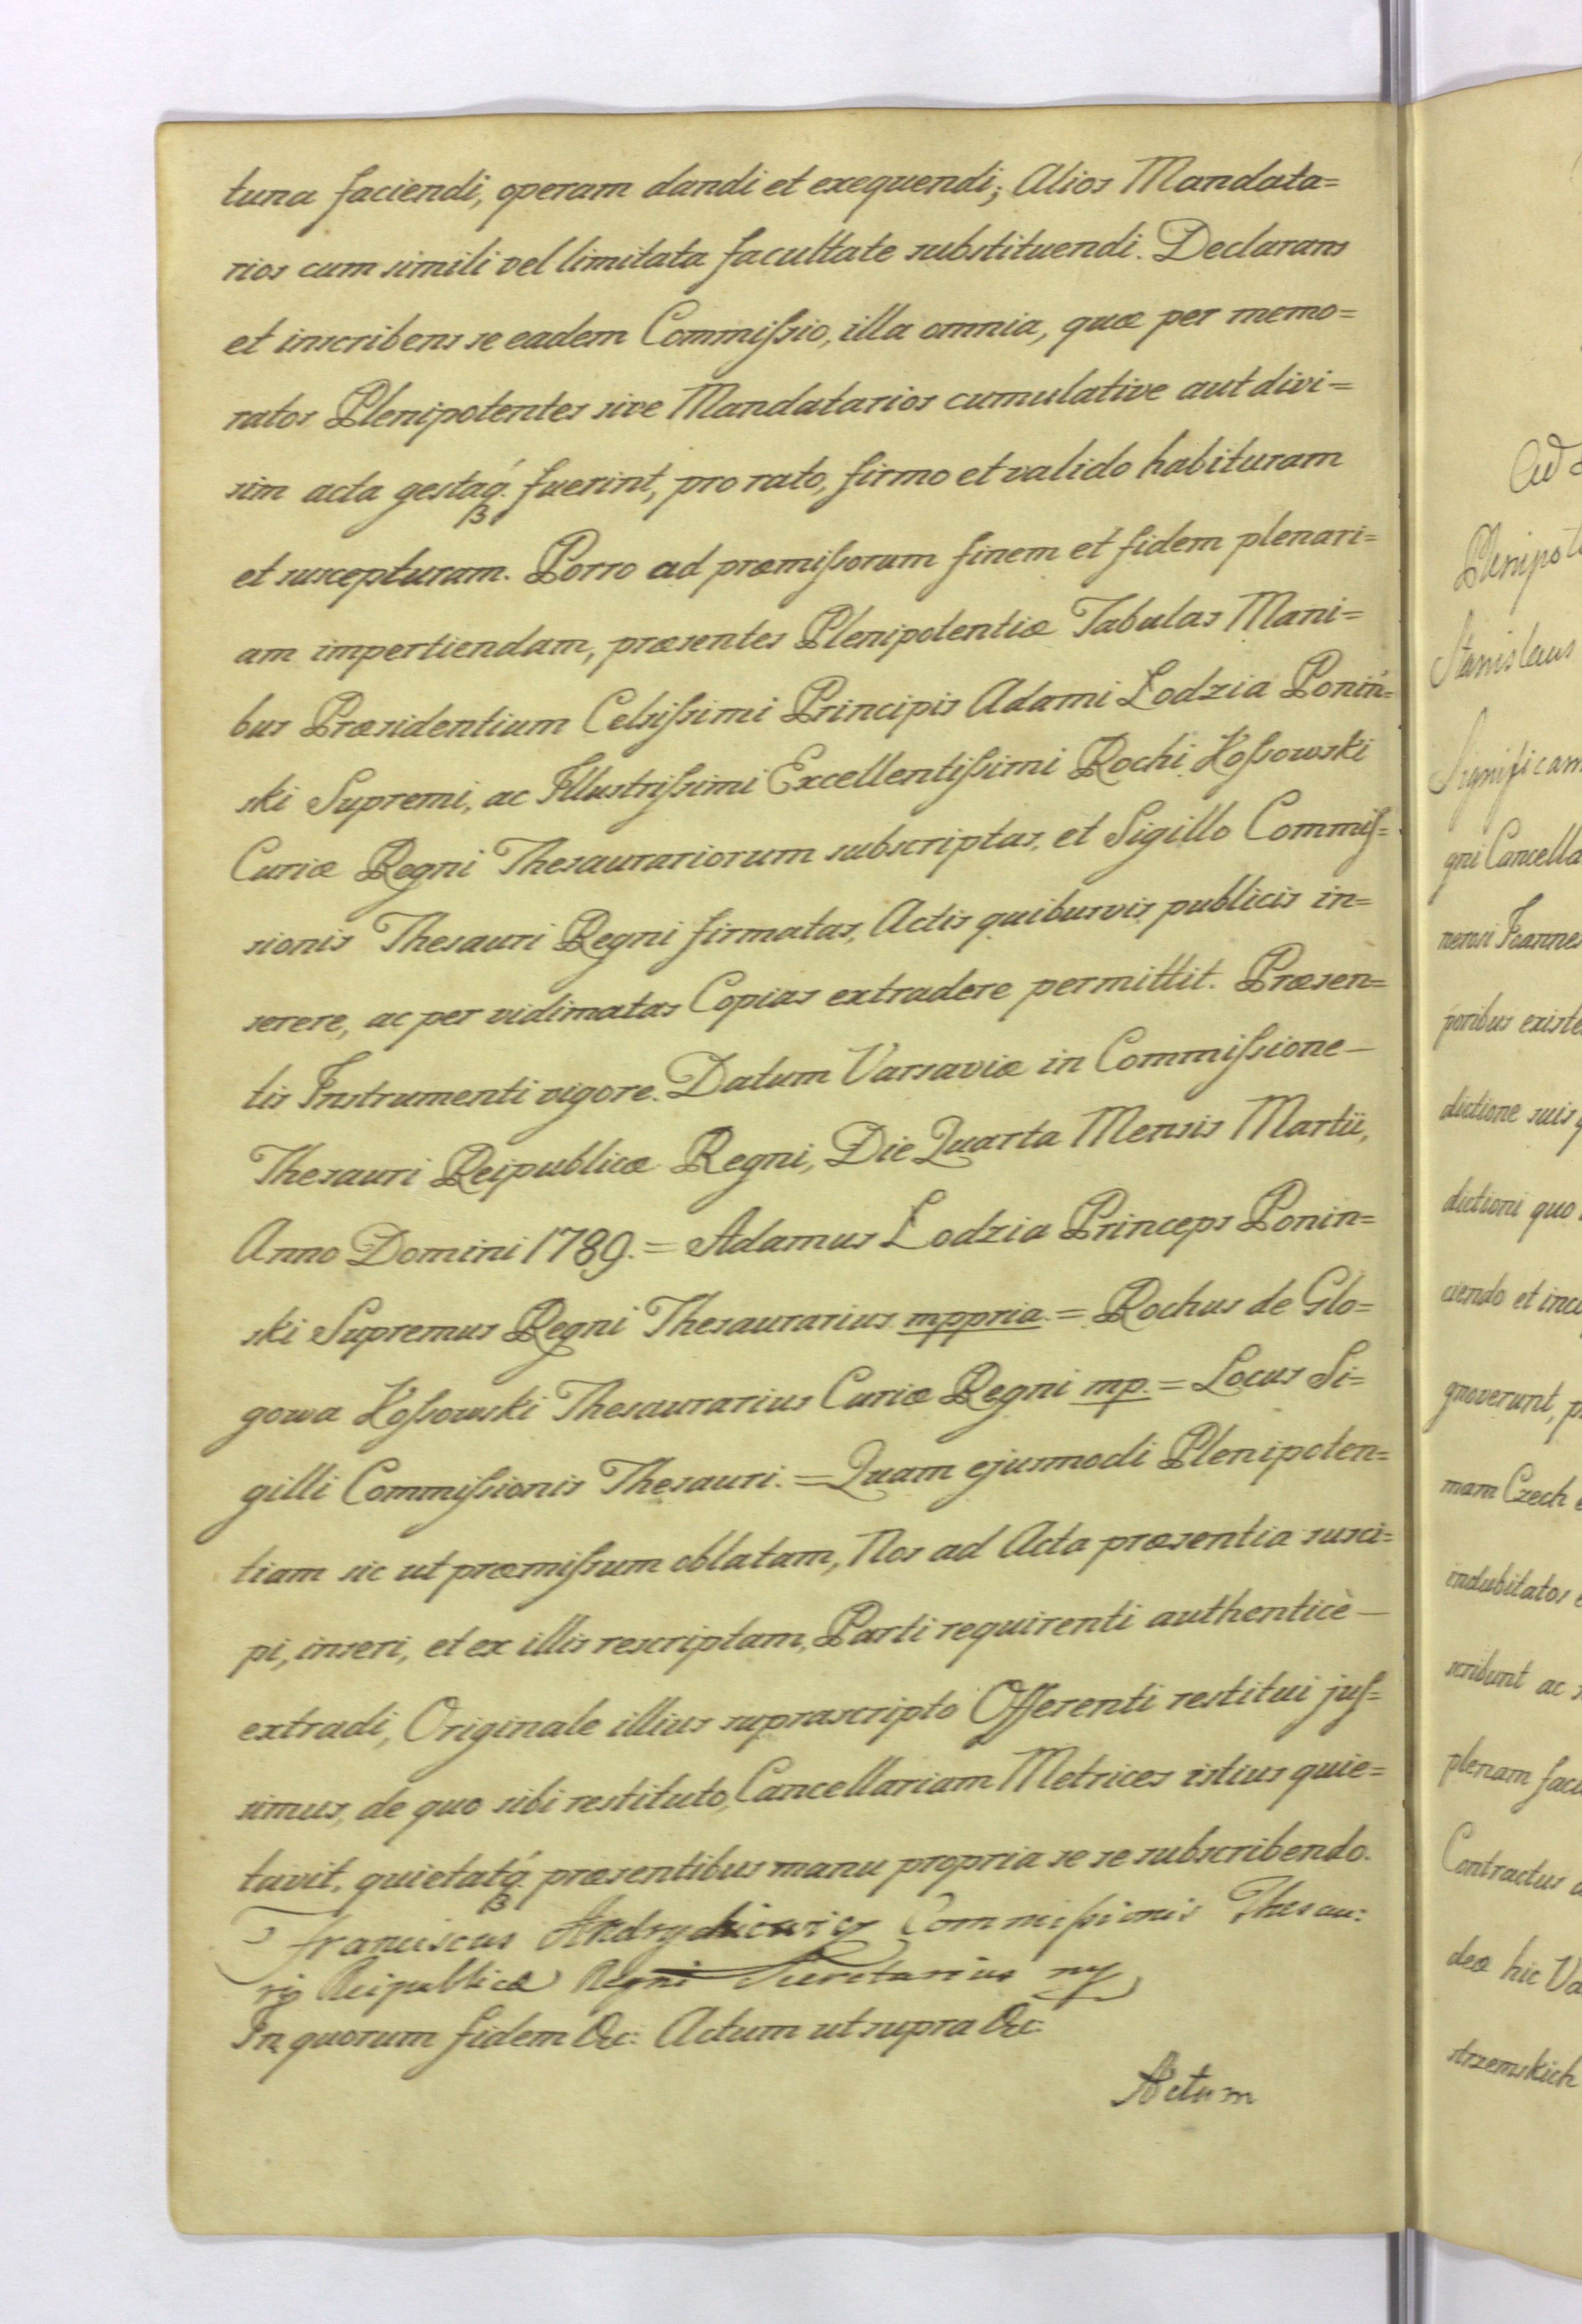 tuna faciendi, operam dandi et exequendi; Alios Mandata=
rios cum simili vel limitata facultate substituendi. Declarans
et inscribens se eadem Commißio, illa omnia, quæ per memo=
ratos Plenipotentes sive Mandatarios cumulative aut divi=
sim acta gestaq́ʒ fuerint, pro rato, firmo et valido habituram
et suscepturam. Porro ad præmißorum finem et fidem plenari=
am impertiendam, præsentes Plenipotentiæ Tabulas Mani=
bus Præsidentium Celsißimi Principis Adami Lodzia Poniń=
ski Supremi, ac Illustrißimi Excellentißimi Rochi Koßowski
Curiæ Regni Thesaurariorum subscriptas, et Sigillo Commiſ=
sionis Thesauri Regni firmatas, Actis quibusvis publicis in=
serere, ac per vidimatas Copias extradere permittit. Præsen=
tis Instrumenti vigore. Datum Varsaviæ in Commißione—
Thesauri Reipublicæ Regni, Die Quarta Mensis Martii,
Anno Domini 1789. = Adamus Lodzia Princeps Ponin=
ski Supremus Regni Thesaurarius mppria. = Rochus de Glo=
gowa Koßowski Thesaurarius Curiæ Regni mp. = Locus Si=
gilli Commißionis Thesauri. = Quam ejusmodi Plenipoten=
tiam sic ut præmißum oblatam, Nos ad Acta præsentia susci=
pi, inseri, et ex illis rescriptam, Parti requirenti authenticè—
extradi, Originale illius suprascripto Offerenti restitui juſ=
simus, de quo sibi restituto, Cancellariam Metrices istius quie=
tavit, quietatq́ʒ præsentibus manu propria se se subscribendo.
Franciscus Andrychiewicz Commißionis Thesau:
ris Reipublicæ Regni Secretarius mp
In quorum fidem &c: Actum ut supra &c:
Actum
Plenipot
Stanislaus
Significam
gni Cancella
nerosi Joannes
poribus existe
dictione suis q
dictioni quo
ciendo et incu
gnoverunt, p
mam Czech e
indubitatos e
scribunt ac s
plenam facu
Contractus a
dea hic Va
strzemskich